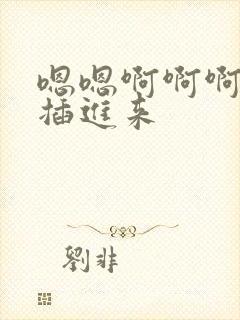 嗯嗯啊啊啊
插進来
劉非